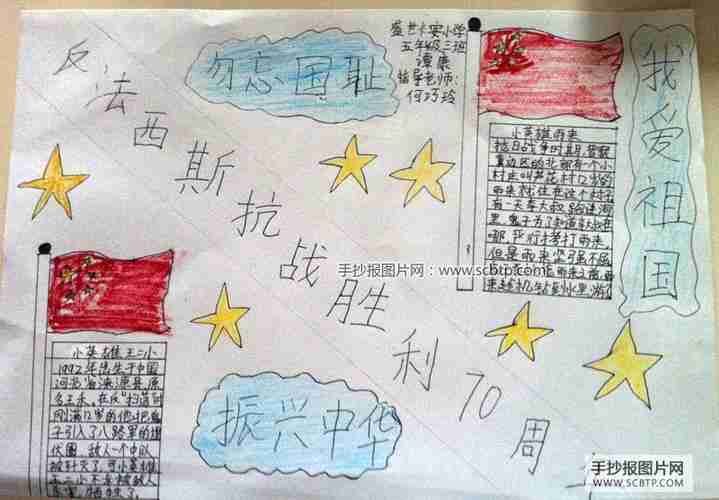 勿忘国耻
盛世卡宾小学
五年级三班
谭康
指导老师:
何巧玲
我爱祖国
反法西斯抗战胜利70周
小英雄雨来
抗日战争时期,晋察
冀边区的北部有一个小
村庄叫芦花村,12岁的
雨来就住在这个村子
有一天李大叔
里,鬼子为了知道李大叔在
哪,严刑拷打雨来,
但是雨来坚强不屈
手抄报图片网:www.scbtp.com
小英雄王二小
1992年出生于中国
河北省涞源县,原
名王禾,在反"扫荡"时
刚满12岁的他把鬼
子引入了八路军的埋
伏圈,敌人一个中队
被歼灭了,可小英雄
振兴中华
手抄报图片网
WWW.SCBTP.COM